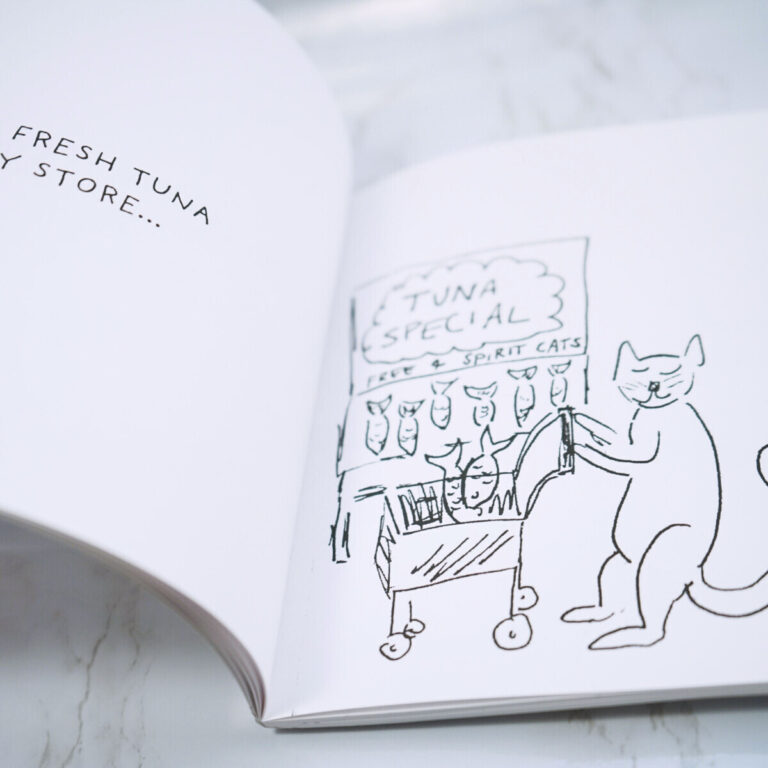 FRESH TUNA
Y STORE...
TUNA
SPECIAL
FREE 4 SPIRIT CATS